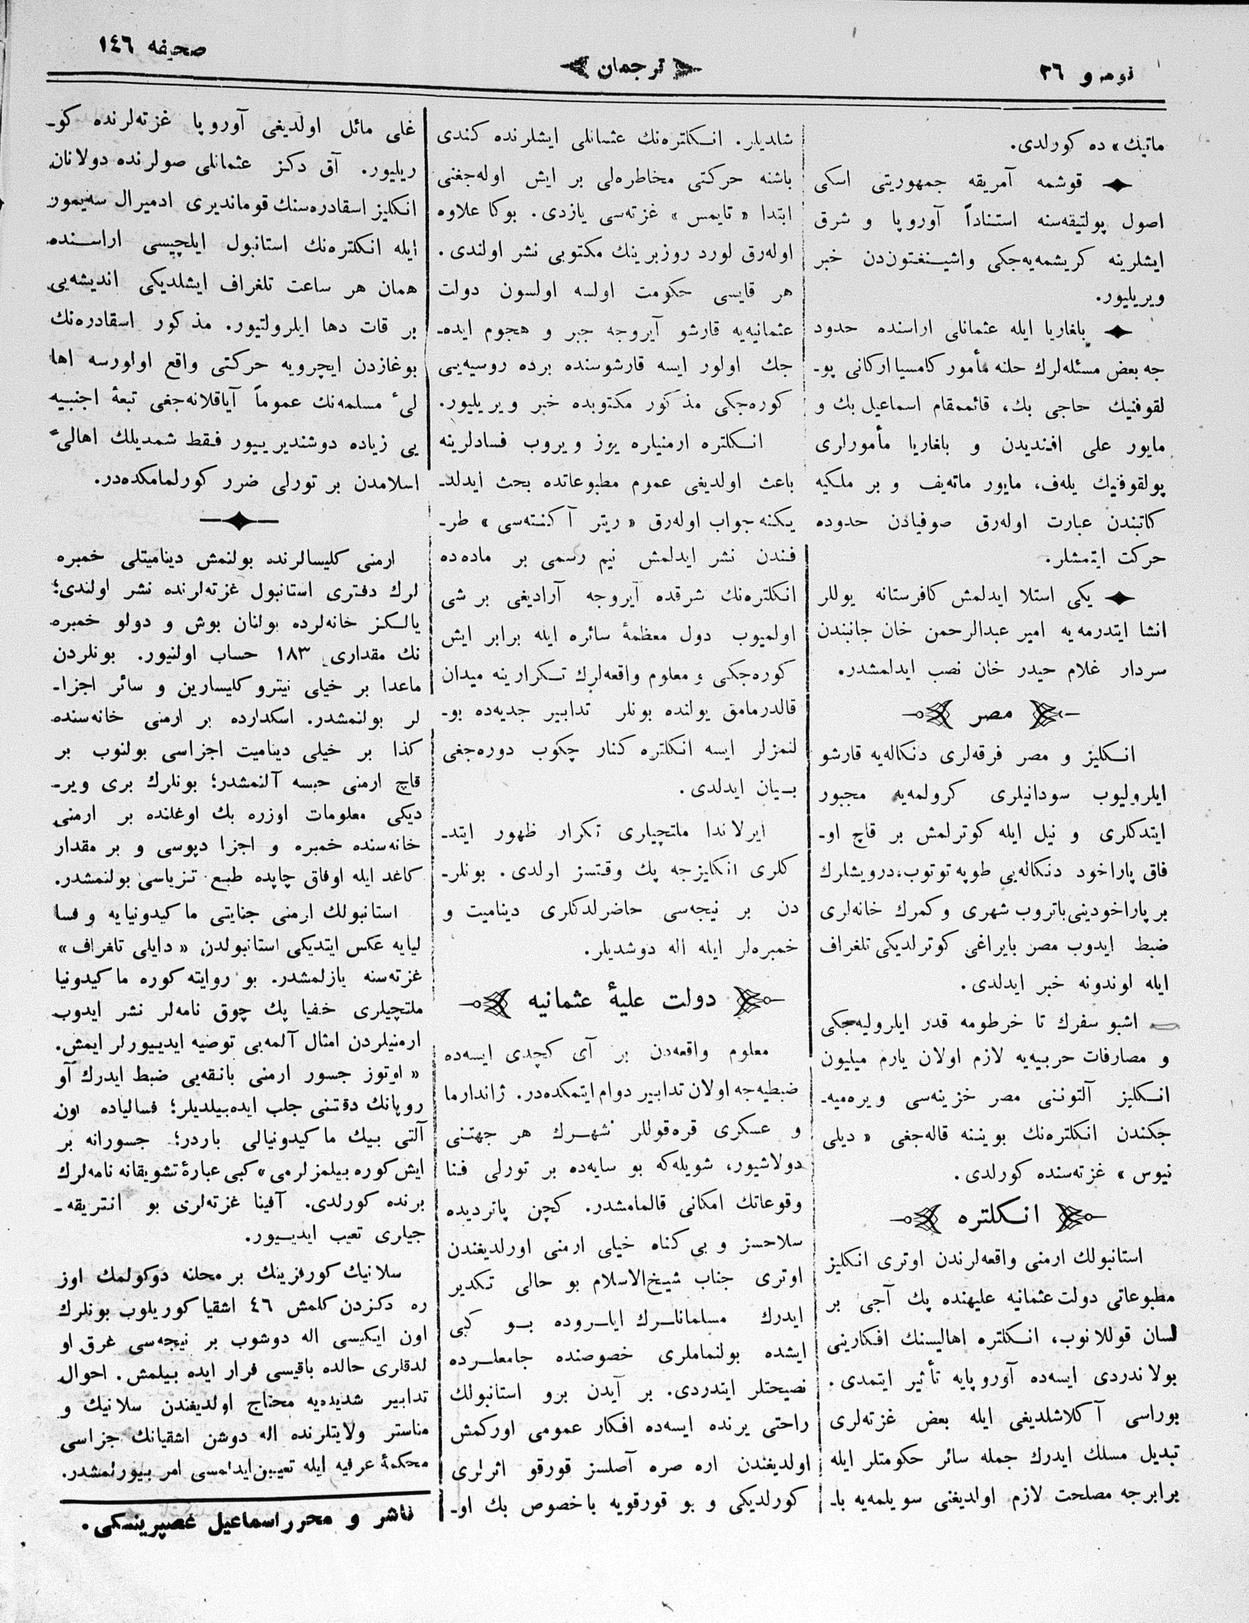 نومرو ٣٦
ترجمان
صحیفه ١٤٦
ماتیك» ده كورلدی.
قوشمه آمریقه جمهوریتی اسكی
اصول پولتیقه‌سنه استناداً آوروپا و شرق
ایشلرینه كریشمه‌یه‌جكی واشینغتون‌دن خبر
ویریلیور.
بلغاریا ایله عثمانلی اراسنده حدود
جه بعض مسئله‌لرك حلنه مأمور كامسیا اركانی پو-
لقوفنیك حاجی بك، قائممقام اسماعیل بك و
مایور علی افندیدن و بلغاریا مأمورلری
پولقوفنیك یله‌ف، مایور ماته‌یف و بر ملكیه
كاتبندن عبارت اوله‌رق صوفیادن حدوده
حركت ایتمشلر.
یكی استلا ایدلمش كافرستانه یوللر
انشا ایتدرمه‌یه امیر عبدالرحمن خان جانبندن
سردار غلام حیدر خان نصب ایدلمشدر.
مصر
انكلیز و مصر فرقه‌لری دنكاله‌یه قارشو
ایلرولیوب سودانیلری كرولمه‌یه مجبور
ایتدكلری و نیل ایله كوترلمش بر قاچ او-
فاق پاراخود دنكاله‌یی طوپه توتوب، درویشلرك
بر پاراخودینی باتروب شهری و كمرك خانه‌لری
ضبط ایدوب مصر بایراغی كوترلدیكی تلغراف
ایله لوندونه خبر ایدلدی.
اشبو سفرك تا خرطومه قدر ایلرولیه‌جكی
و مصارفات حربیه‌یه لازم اولان یارم میلیون
انكلیز آلتوننی مصر خزینه‌سی ویره‌میه-
جكندن انكلتره‌نك بویننه قاله‌جغی «دیلی
نیوس» غزته‌سنده كورلدی.
انكلتره
استانبولك ارمنی واقعه‌لرندن اوتری انكلیز
مطبوعاتی دولت عثمانیه علیهنده پك آجی بر
لسان قوللانوب، انكلتره اهالیسنك افكارینی
بولاندردی ایسه‌ده آوروپایه تأثیر ایتمدی.
بوراسی آكلاشلدیغی ایله بعض غزته‌لری
تبدیل مسلك ایدرك جمله سائر حكومتلر ایله
برابرجه مصلحت لازم اولدیغنی سویلمه‌یه با-
شلدیلر. انكلتره‌نك عثمانلی ایشلرنده كندی
باشنه حركتی مخاطره‌لی بر ایش اوله‌جغنی
ابتدا «تایمس» غزته‌سی یازدی. بوكا علاوه
اوله‌رق لورد روزبرینك مكتوبی نشر اولندی.
هر قایسی حكومت اولسه اولسون دولت
عثمانیه‌یه قارشو آیروجه جبر و هجوم ایده-
جك اولور ایسه قارشوسنده برده روسیه‌یی
كوره‌جكی مذكور مكتوبده خبر ویریلیور.
انكلتره ارمنیلره یوز ویروب فسادلرینه
باعث اولدیغی عموم مطبوعاتده بحث ایدلد-
یكنه جواب اوله‌رق «ریتر آكنته‌سی» طر-
فندن نشر ایدلمش نیم رسمی بر ماده‌ده
انكلتره‌نك شرقده آیروجه آرادیغی بر شی
اولمیوب دول معظمهٔ سائره ایله برابر ایش
كوره‌جكی و معلوم واقعه‌لرك تكرارینه میدان
قالدرمامق یولنده بونلر تدابیر جدیه‌ده بو-
لنمزلر ایسه انكلتره كنار چكوب دوره‌جغی
بیان ایدلدی.
ایرلاندا ملتچیلری تكرار ظهور ایتد-
كلری انكلیزجه پك وقتسز اولدی. بونلر-
دن بر نیجه‌سی حاضرلدكلری دینامیت و
خمبره‌لر ایله اله دوشدیلر.
دولت علیهٔ عثمانیه
معلوم واقعه‌دن بر آی كچدی ایسه‌ده
ضبطیه‌جه اولان تدابیر دوام ایتمكده‌در. ژاندارما
و عسكری قره‌قوللر شهرك هر جهتنی
دولاشیور، شویله‌كه بو سایه‌ده بر تورلی فنا
وقوعاتك امكانی قالمامشدر. كچن پاتردیده
سلاحسز و بی كناه خیلی ارمنی اورلدیغندن
اوتری جناب شیخ‌الاسلام بو حالی تكدیر
ایدرك مسلمانلرك ایلروده بو كبی
ایشده بولنماملری خصوصنده جامعلرده
نصیحتلر ایتدردی. بر آیدن برو استانبولك
راحتی یرنده ایسه‌ده افكار عمومی اوركمش
اولدیغندن اره صره آصلسز قورقو اثرلری
كورلدیكی و بو قورقویه باخصوص بك او-
غلی مائل اولدیغی آوروپا غزته‌لرنده كو-
ریلیور. آق دكز عثمانلی صولرنده دولانان
انكلیز اسقادره‌سنك قوماندیری ادمیرال سه‌یمور
ایله انكلتره‌نك استانبول ایلچیسی اراسنده
همان هر ساعت تلغراف ایشلدیكی اندیشه‌یی
بر قات دها ایلرولتیور. مذكور اسقادره‌نك
بوغازدن ایچرویه حركتی واقع اولورسه اها
لیٔ مسلمه‌نك عموماً آیاقلانه‌جغی تبعهٔ اجنبیه
یی زیاده دوشندیریور فقط شمدیلك اهالیٔ
اسلامدن بر تورلی ضرر كورلمامكده‌در.
ارمنی كلیسالرنده بولنمش دینامیتلی خمبره
لرك دفتری استانبول غزته‌لرنده نشر اولندی؛
یالكز خانه‌لرده بولنان بوش و دولو خمبره
نك مقداری ١٨٣ حساب اولنیور. بونلردن
ماعدا بر خیلی نیتروكلیسارین و سائر اجزا-
لر بولنمشدر. اسكدارده بر ارمنی خانه‌سنده
كذا بر خیلی دینامیت اجزاسی بولنوب بر
قاچ ارمنی حبسه آلنمشدر؛ بونلرك بری ویر-
دیكی معلومات اوزره بك اوغلنده بر ارمنی
خانه‌سنده خمبره و اجزا دپوسی و بر مقدار
كاغد ایله اوفاق چاپده طبع تزیاسی بولنمشدر.
استانبولك ارمنی جنایتی ماكیدونیایه و فسا
لیایه عكس ایتدیكی استانبولدن «دایلی تلغراف»
غزته‌سنه یازلمشدر. بو روایته كوره ماكیدونیا
ملتچیلری خفیا پك چوق نامه‌لر نشر ایدوب
ارمنیلردن امثال آلمه‌یی توصیه ایدییورلر ایمش.
«اوتوز جسور ارمنی بانقه‌یی ضبط ایدرك آو
روپانك دقتنی جلب ایده‌بیلدیلر؛ فسالیاده اون
آلتی بیك ماكیدونیالی باردر؛ جسورانه بر
ایش كوره بیلمزلرمی» كبی عبارهٔ تشویقانه نامه‌لرك
برنده كورلدی. آفینا غزته‌لری بو انتریقه-
جیلری تعیب ایدییور.
سلانیك كورفزینك بر محلنه دوكولمك اوز
ره دكزدن كلمش ٤٦ اشقیا كوریلوب بونلرك
اون ایكیسی اله دوشوب بر نیجه‌سی غرق او
لدقلری حالده باقیسی فرار ایده بیلمش. احوال
تدابیر شدیده‌یه محتاج اولدیغندن سلانیك و
مناستر ولایتلرنده اله دوشن اشقیانك جزاسی
محكمهٔ عرفیه ایله تعیین ایدلمسی امر بیورلمشدر.
ناشر و محرر اسماعیل غصپرینسكی.